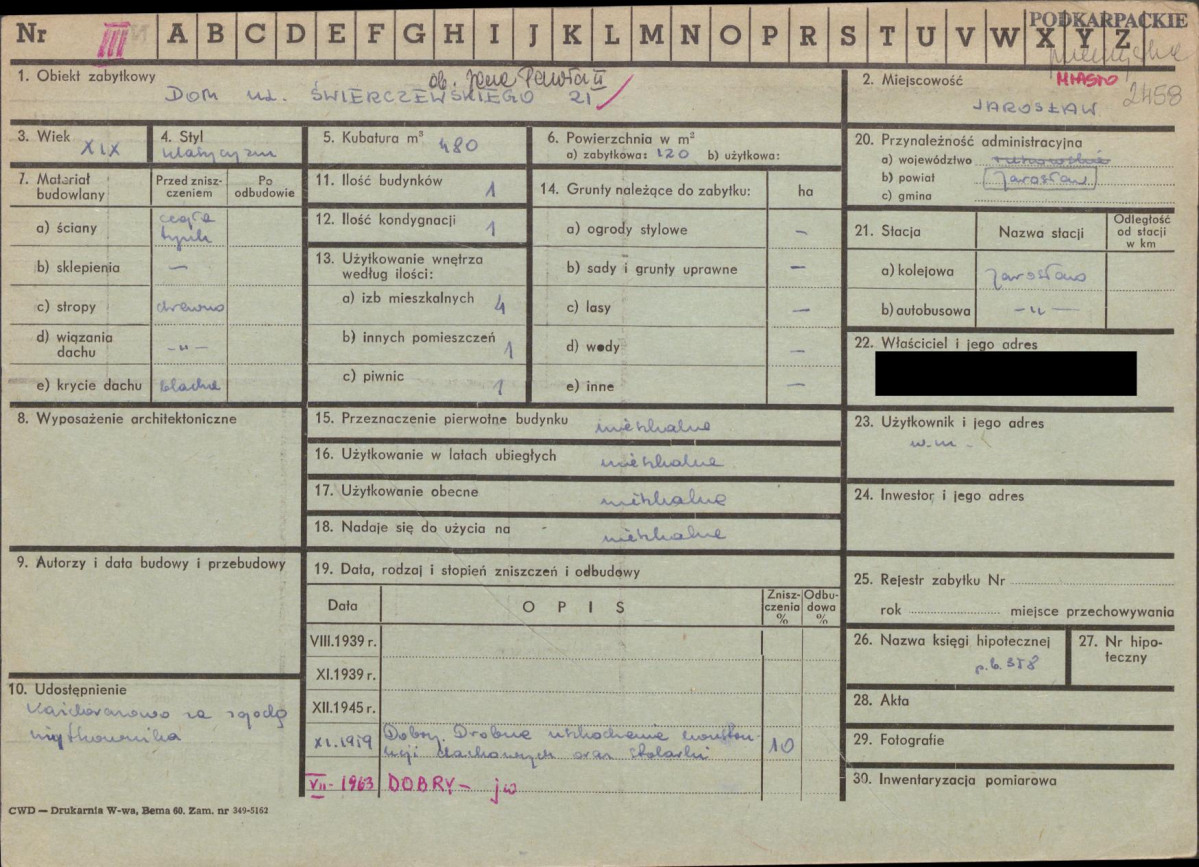 PODKARPACKIE
Nr III A B C D E F G H I J K L M N O P R S T U V W X Y Z
przemyskie
1. Obiekt zabytkowy
ob. Jana Pawła II
DOM UL. ŚWIERCZEWSKIEGO 21
2. Miejscowość
MIASTO
JAROSŁAW
2458
3. Wiek
XIX
4. Styl
klasycyzm
5. Kubatura m³
480
6. Powierzchnia w m²
a) zabytkowa: 120 b) użytkowa:
20. Przynależność administracyjna
a) województwo rzeszowskie
b) powiat Jarosław
c) gmina
7. Materiał budowlany
Przed zniszczeniem
Po odbudowie
a) ściany cegła tynk
b) sklepienia —
c) stropy drewno
d) wiązania dachu -„-
e) krycie dachu blacha
11. Ilość budynków 1
12. Ilość kondygnacji 1
13. Użytkowanie wnętrza według ilości:
a) izb mieszkalnych 4
b) innych pomieszczeń 1
c) piwnic 1
14. Grunty należące do zabytku: ha
a) ogrody stylowe —
b) sady i grunty uprawne —
c) lasy —
d) wody —
e) inne —
21. Stacja
Nazwa stacji
Odległość od stacji w km
a) kolejowa Jarosław
b) autobusowa -„-
22. Właściciel i jego adres
8. Wyposażenie architektoniczne
15. Przeznaczenie pierwotne budynku mieszkalne
16. Użytkowanie w latach ubiegłych mieszkalne
17. Użytkowanie obecne mieszkalne
18. Nadaje się do użycia na mieszkalne
23. Użytkownik i jego adres
w.m.
24. Inwestor i jego adres
9. Autorzy i data budowy i przebudowy
19. Data, rodzaj i stopień zniszczeń i odbudowy
Data
OPIS
Zniszczenia %
Odbudowa %
VIII.1939 r.
XI.1939 r.
XII.1945 r.
XI.1959 Dobry. Drobne uszkodzenia konstrukcji dachowych oraz stolarki 10
VII-1963 DOBRY - jw
25. Rejestr zabytku Nr
rok miejsce przechowywania
26. Nazwa księgi hipotecznej
p.b. 358
27. Nr hipoteczny
10. Udostępnienie
Każdorazowo za zgodą
użytkownika
28. Akta
29. Fotografie
30. Inwentaryzacja pomiarowa
CWD — Drukarnia W-wa, Bema 60. Zam. nr 349-5162